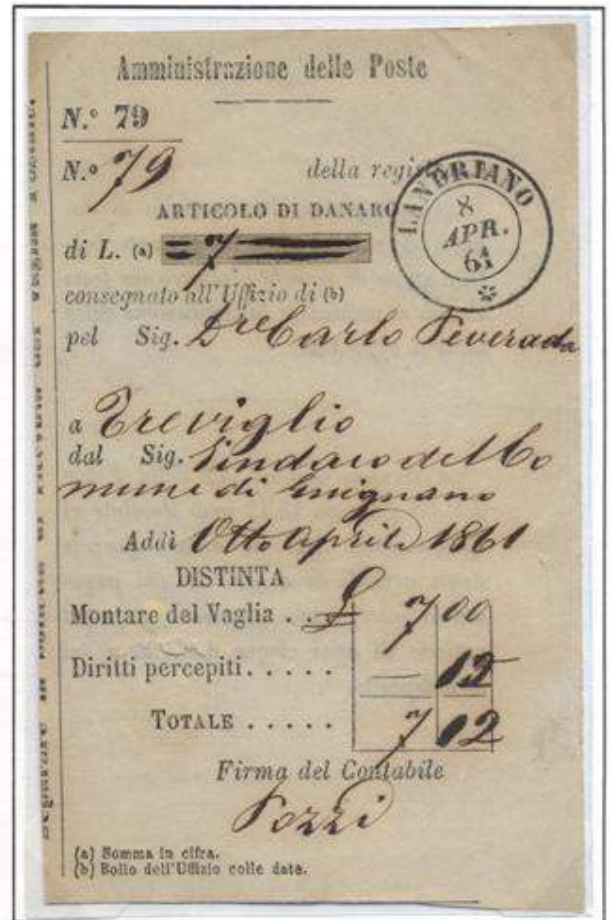 Amministrazione delle Poste
N.° 79
N.° 79 della regist
LANDRIANO
8
APR.
61
ARTICOLO DI DANARO
di L. (a) =7=
consegnato all'Uffizio di (b)
pel Sig. Dre Carlo Peverada
a Treviglio
dal Sig. Sindaco del Co
mune di
Addì Otto Aprile 1861
DISTINTA
Montare del Vaglia . . £ 7 00
Diritti percepiti . . . . . — 12
TOTALE . . . . . 7 12
Firma del Contabile
Pozzi
(a) Somma in cifra.
(b) Bollo dell'Uffizio colle date.